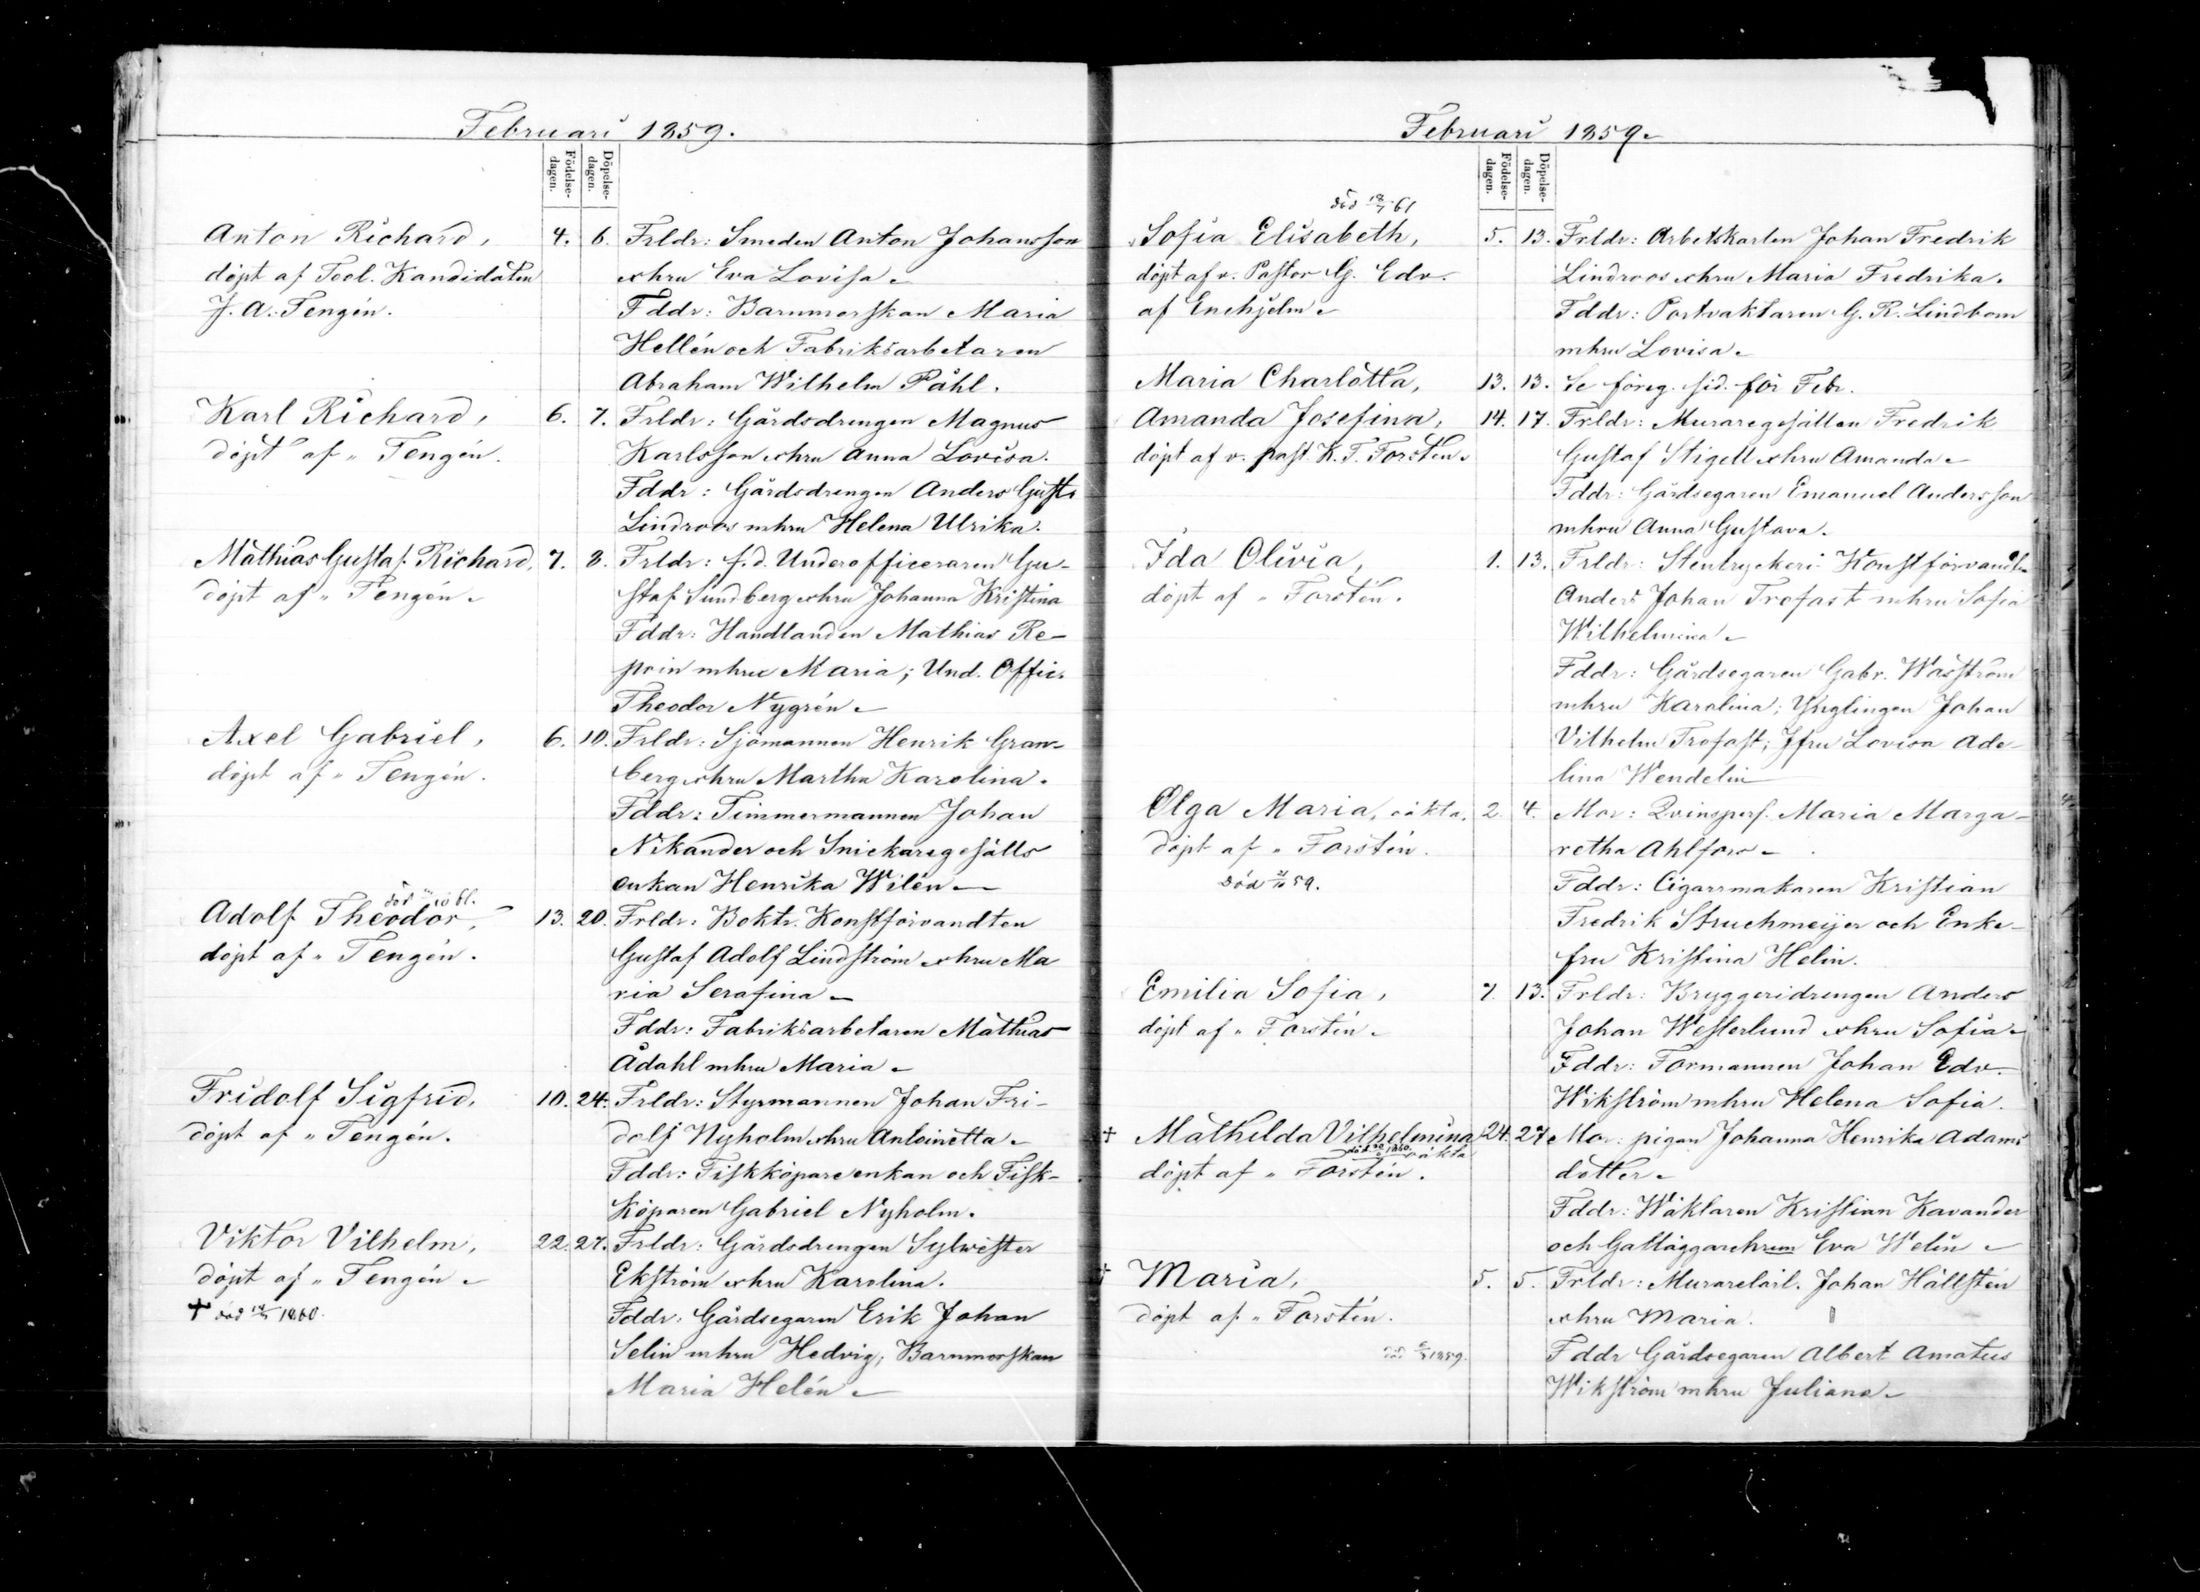 Februari 1859.
Födelse-dagen.
Döpelse-dagen.
Anton Richard, 4. 6. Frldr: Smeden Anton Johansson
döpt af Teol. Kandidaten o. hru Eva Lovisa
J. A. Tengén. Fddr: Barnmorskan Maria
Hellén och Fabriksarbetaren
Abraham Wilhelm Påhl.
Karl Richard, 6. 7. Frldr: Gårdsdrengen Magnus
döpt af " Tengén. Karlsson o. hru Anna Lovisa.
Fddr: Gårdsdrengen Anders Gust.
Lindroos m hru Helena Ulrika.
Mathias Gustaf Richard, 7. 8. Frldr: f. d. Underofficeraren Gu-
döpt af " Tengén staf Sundberg o. hru Johanna Kristina
Fddr: Handlanden Mathias Re-
poin m hru Maria; Und. Offic.
Theodor Nygrén
Axel Gabriel, 6. 10. Frldr: Sjömannen Henrik Gran-
döpt af " Tengén. berg o. hru Martha Karolina.
Fddr: Timmermannen Johan
Nikander och Snickaregesälls
enkan Henrika Wilén
död
Adolf Theodor, 13. 20. Frldr: Boktr. Konstförvandten
döpt af " Tengén. Gustaf Adolf Lindström o. hru Ma
ria Serafina
Fddr: Fabriksarbetaren Mathias
Ådahl m hru Maria
Fridolf Sigfrid, 10. 24. Frldr: Styrmannen Johan Fri-
döpt af " Tengén. dolf Nyholm o. hru Antoinetta
Fddr: Fiskköpareenkan och Fisk-
köparen Gabriel Nyholm.
Viktor Vilhelm, 22. 27. Frldr: Gårdsdrengen Sylwester
döpt af " Tengén Ekström o. hru Karolina.
† död 1860. Fddr: Gårdsegaren Erik Johan
Selin m hru Hedvig; Barnmorskan
Maria Helén
Februari 1859.
Födelse-dagen.
Döpelse-dagen.
död 61
Sofia Elisabeth, 5. 13. Frldr: Arbetskarlen Johan Fredrik
döpt af v. Pastor G. Edv. Lindroos o. hru Maria Fredrika.
af Enehjelm Fddr: Portvaktaren G. R. Lindbom
m hru Lovisa
Maria Charlotta, 13. 13. Se föreg. sid. för Febr.
Amanda Josefina, 14. 17. Frldr: Muraregesällen Fredrik
döpt af v. past. K. T. Forstén Gustaf Stigell o. hru Amanda
Fddr: Gårdsegaren Emanuel Andersson
m hru Anna Gustava.
Ida Olivia, 1. 13. Frldr: Stentryckeri Konstförvandt.
döpt af " Forstén. Anders Johan Trofast m hru Sofia
Wilhelmina
Fddr: Gårdsegaren Gabr. Wasström
m hru Karolina; Ynglingen Johan
Vilhelm Trofast; Jfru Lovisa Ade-
lina Wendelin
Olga Maria, oäkta, 2. 4. Mor: Qvinspers. Maria Marga-
döpt af " Forstén. retha Ahlfors
Död 59. Fddr: Cigarrmakaren Kristian
Fredrik Struchmeijer och Enke-
fru Kristina Helin.
Emilia Sofia, 7. 13. Frldr: Bryggeridrengen Anders
döpt af " Forstén Johan Westerlund o. hru Sofia
Fddr: Formannen Johan Edv.
Wikström m hru Helena Sofia.
† Mathilda Vilhelmina 24. 27 Mor: pigan Johanna Henrika Adams
död 1860. oäkta
döpt af " Forstén. dotter
Fddr: Waktaren Kristian Kavander
och Gatläggarehrun Eva Welin
† Maria, 5. 5. Frldr: Murarelärl. Johan Hällstén
döpt af " Forstén. o. hru Maria.
död 1859. Fddr Gårdsegaren Albert Amatus
Wikström m hru Juliana